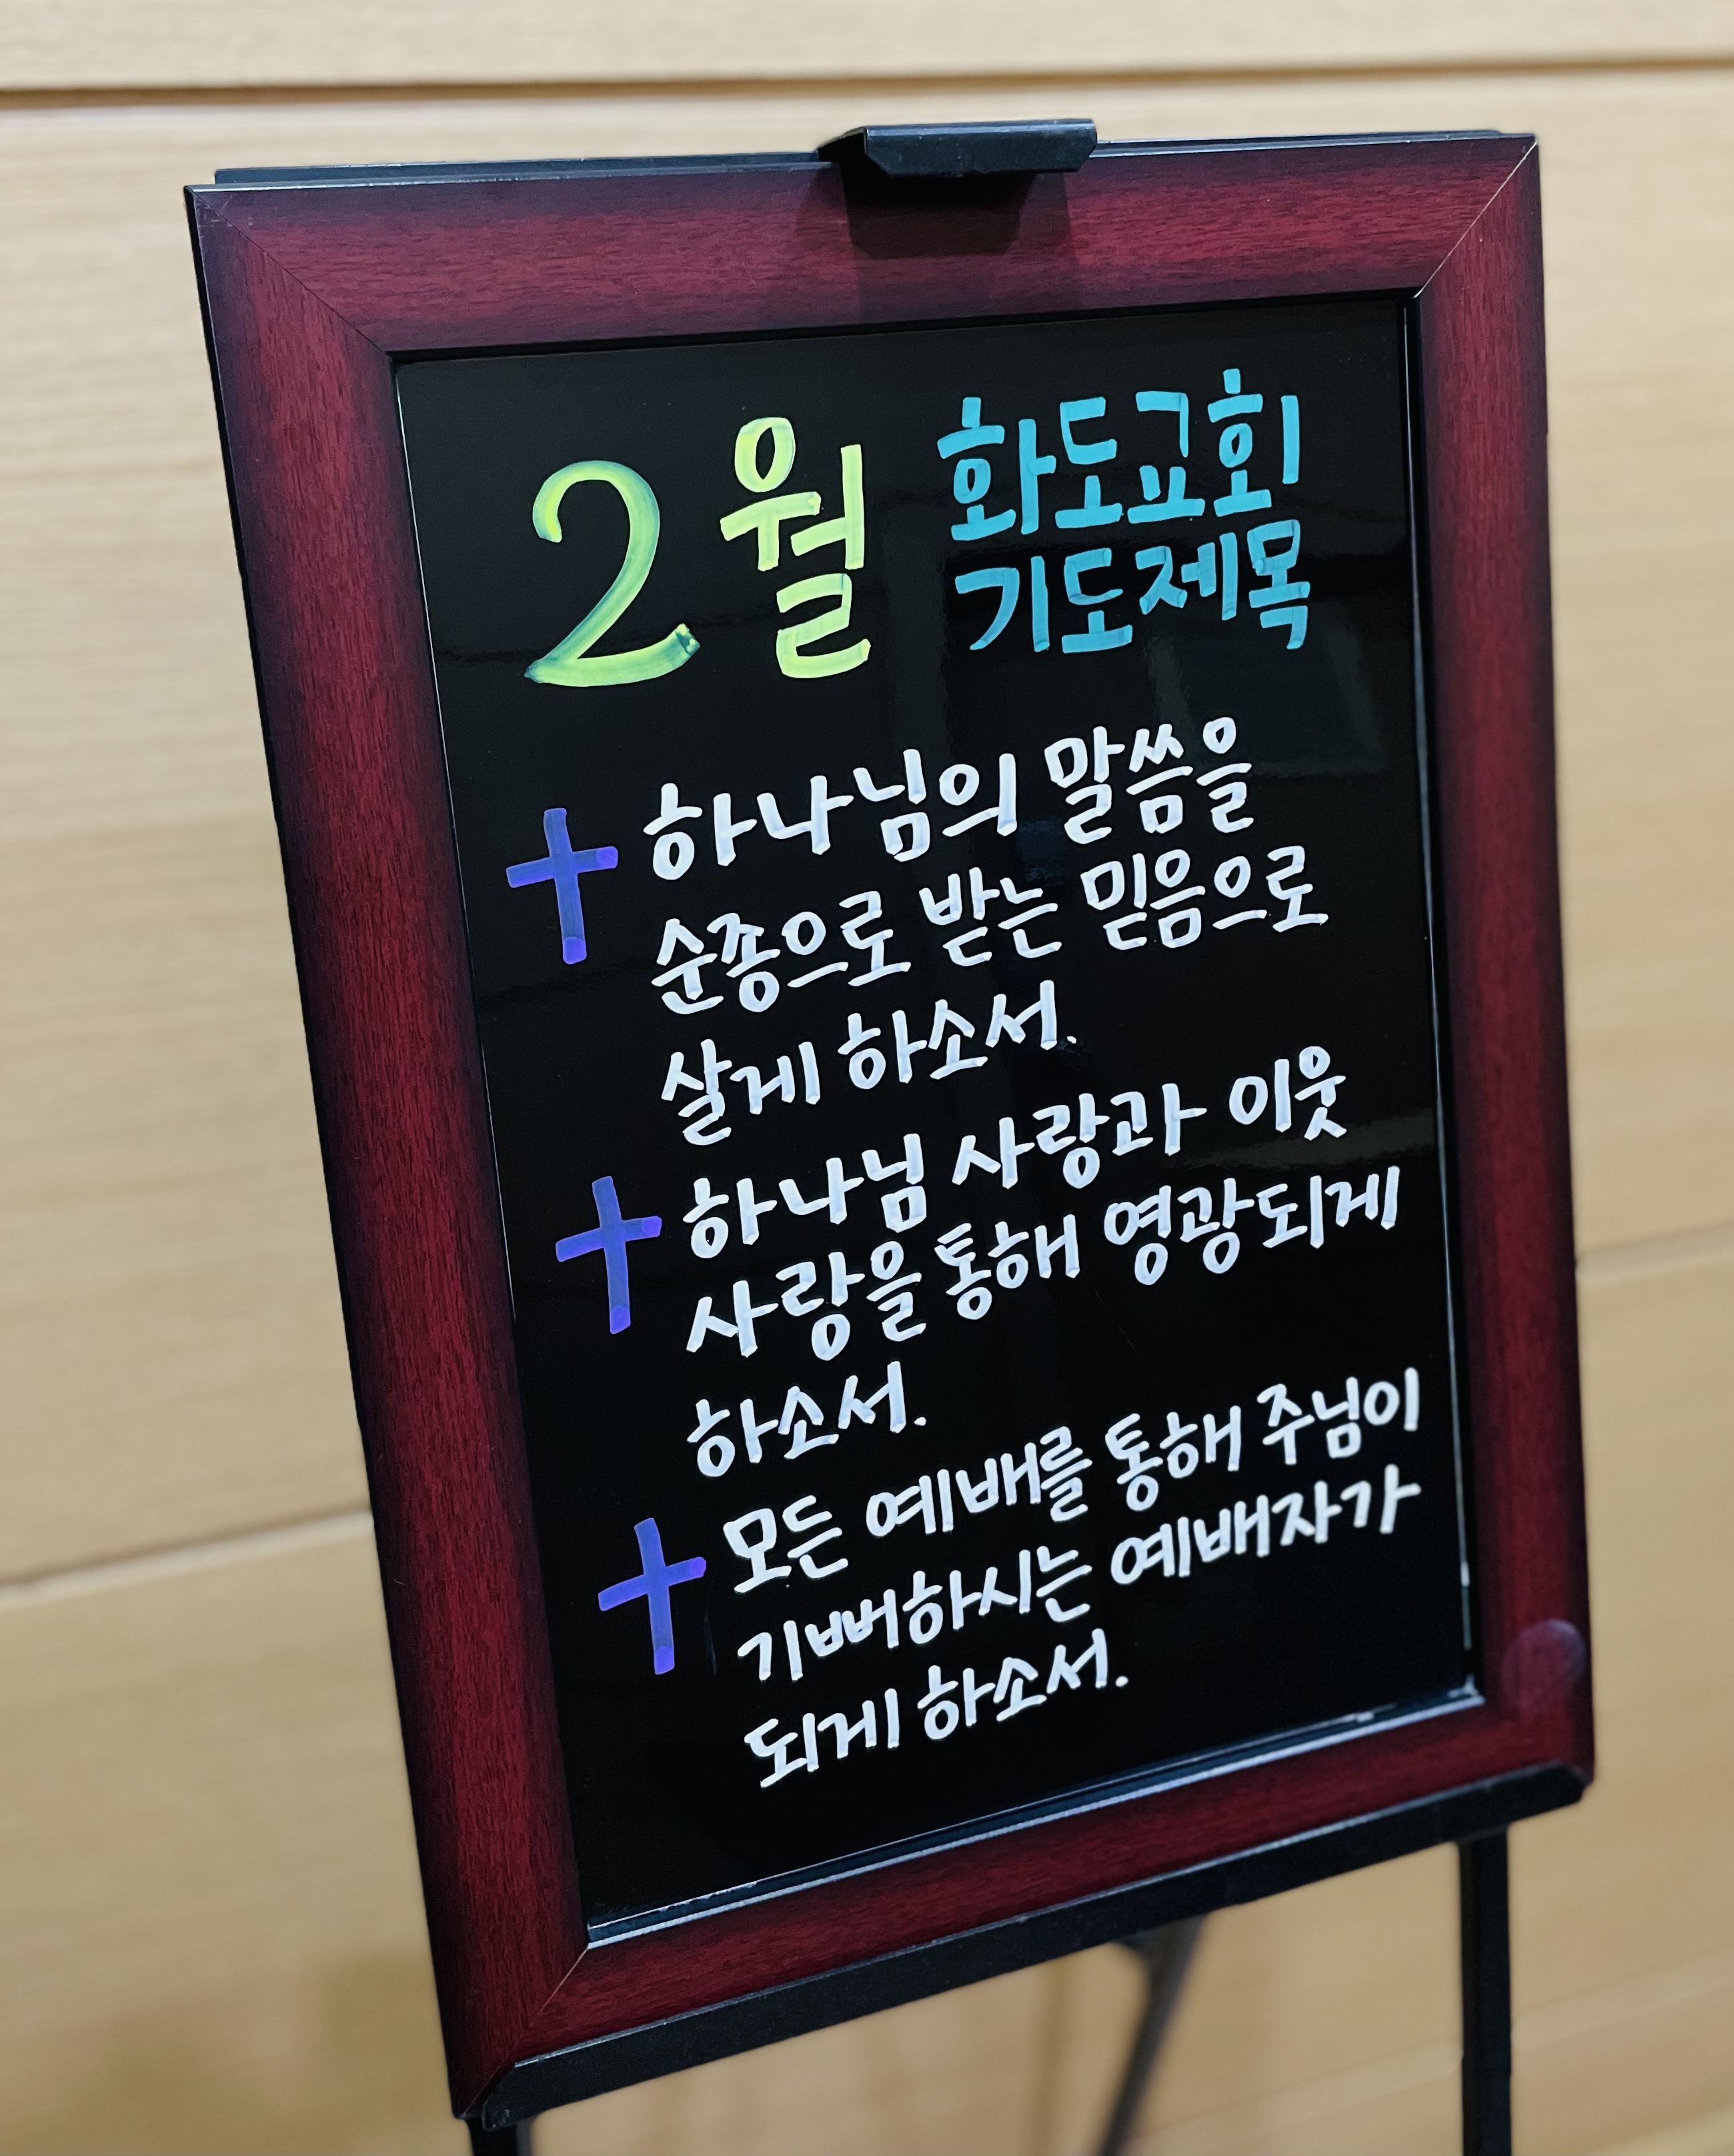 2월 화도교회
기도제목
하나님의 말씀을
순종으로 받는 믿음으로
살게 하소서.
하나님 사랑과 이웃
사랑을 통해 영광되게
하소서.
모든 예배를 통해 주님이
기뻐하시는 예배자가
되게 하소서.